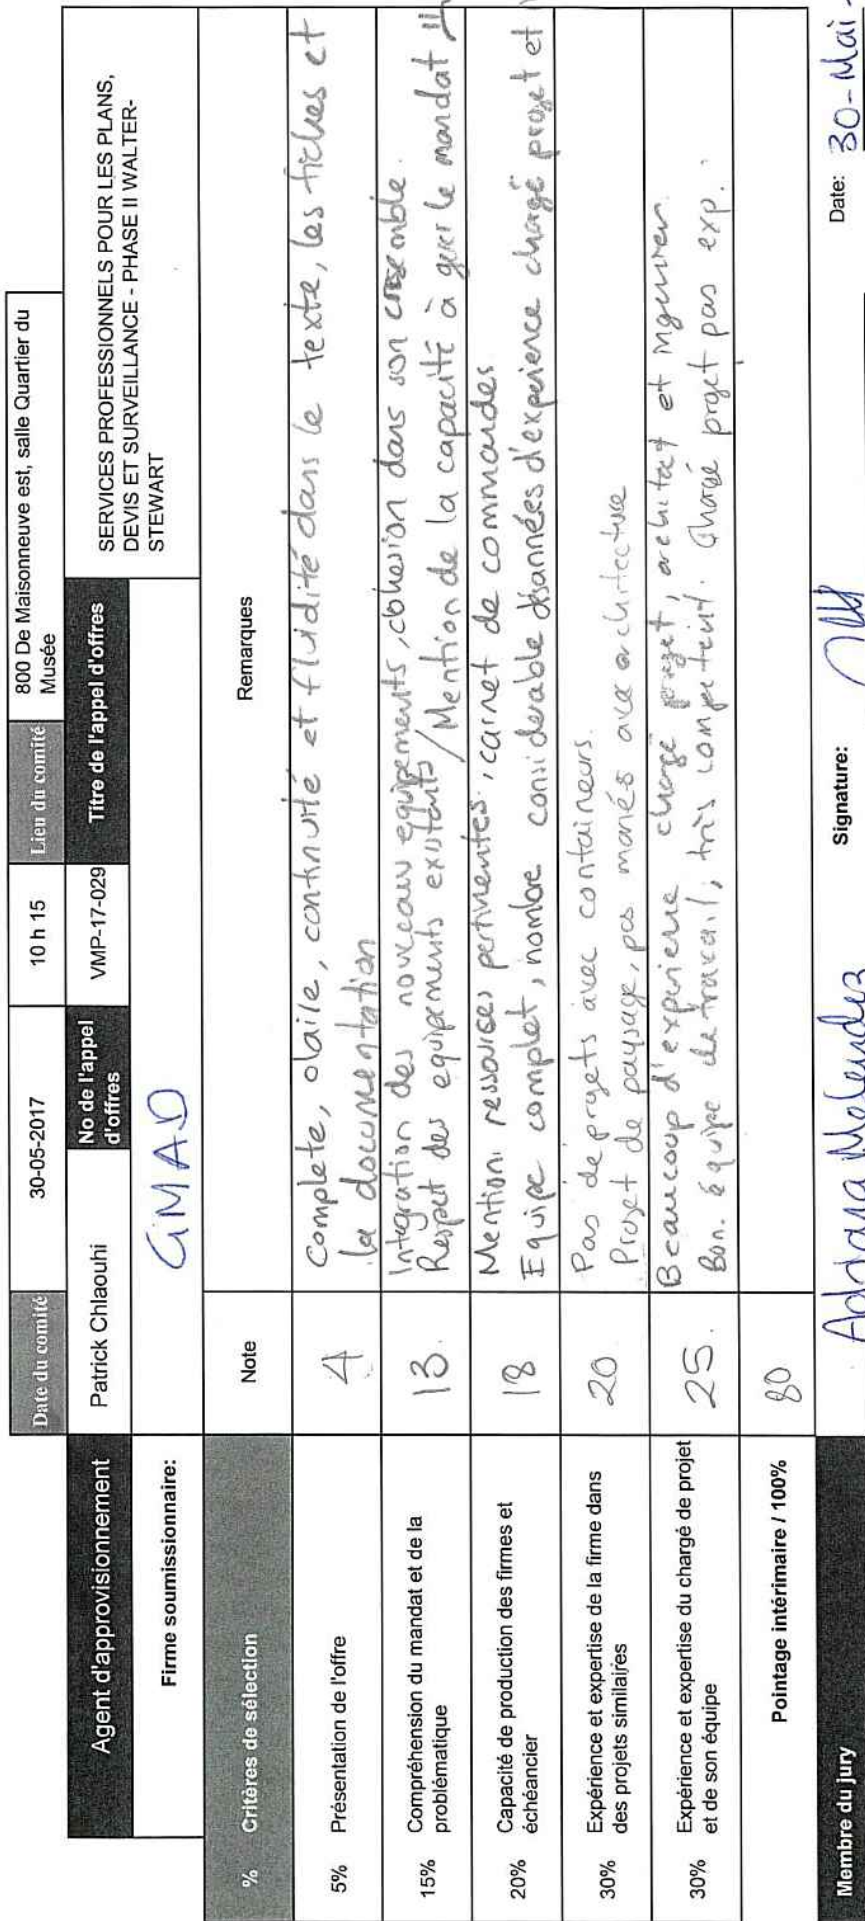 Date du comité 30-05-2017 10 h 15 Lieu du comité 800 De Maisonneuve est, salle Quartier du
Musée
Agent d'approvisionnement Patrick Chlaouhi No de l'appel
d'offres VMP-17-029 Titre de l'appel d'offres SERVICES PROFESSIONNELS POUR LES PLANS,
DEVIS ET SURVEILLANCE - PHASE II WALTER-
STEWART
Firme soumissionnaire: CIMA D
% Critères de sélection Note Remarques
5% Présentation de l'offre 4 Complete, claire, continuité et fluidité dans le texte, les fiches et
la documentation
15% Compréhension du mandat et de la
problématique 13. Integration des nouveaux equipements, cohesion dans son ensemble.
Respect des equipements existants / Mention de la capacité à gerer le mandat
20% Capacité de production des firmes et
échéancier 18 Mention ressources pertinentes, carnet de commandes
Equipe complet, nombre considerable d'années d'experience chargé projet et
30% Expérience et expertise de la firme dans
des projets similaires 20 Pas de projets avec containeurs.
Projet de paysage, pas mariés avec architecture
30% Expérience et expertise du chargé de projet
et de son équipe 25. Beaucoup d'experience chargé projet, architect et ingenieur.
Bon. équipe de travail, très competent. Chargé projet pas exp.
Pointage intérimaire / 100% 80
Membre du jury Adriana Melendez Signature: Date: 30-Mai-